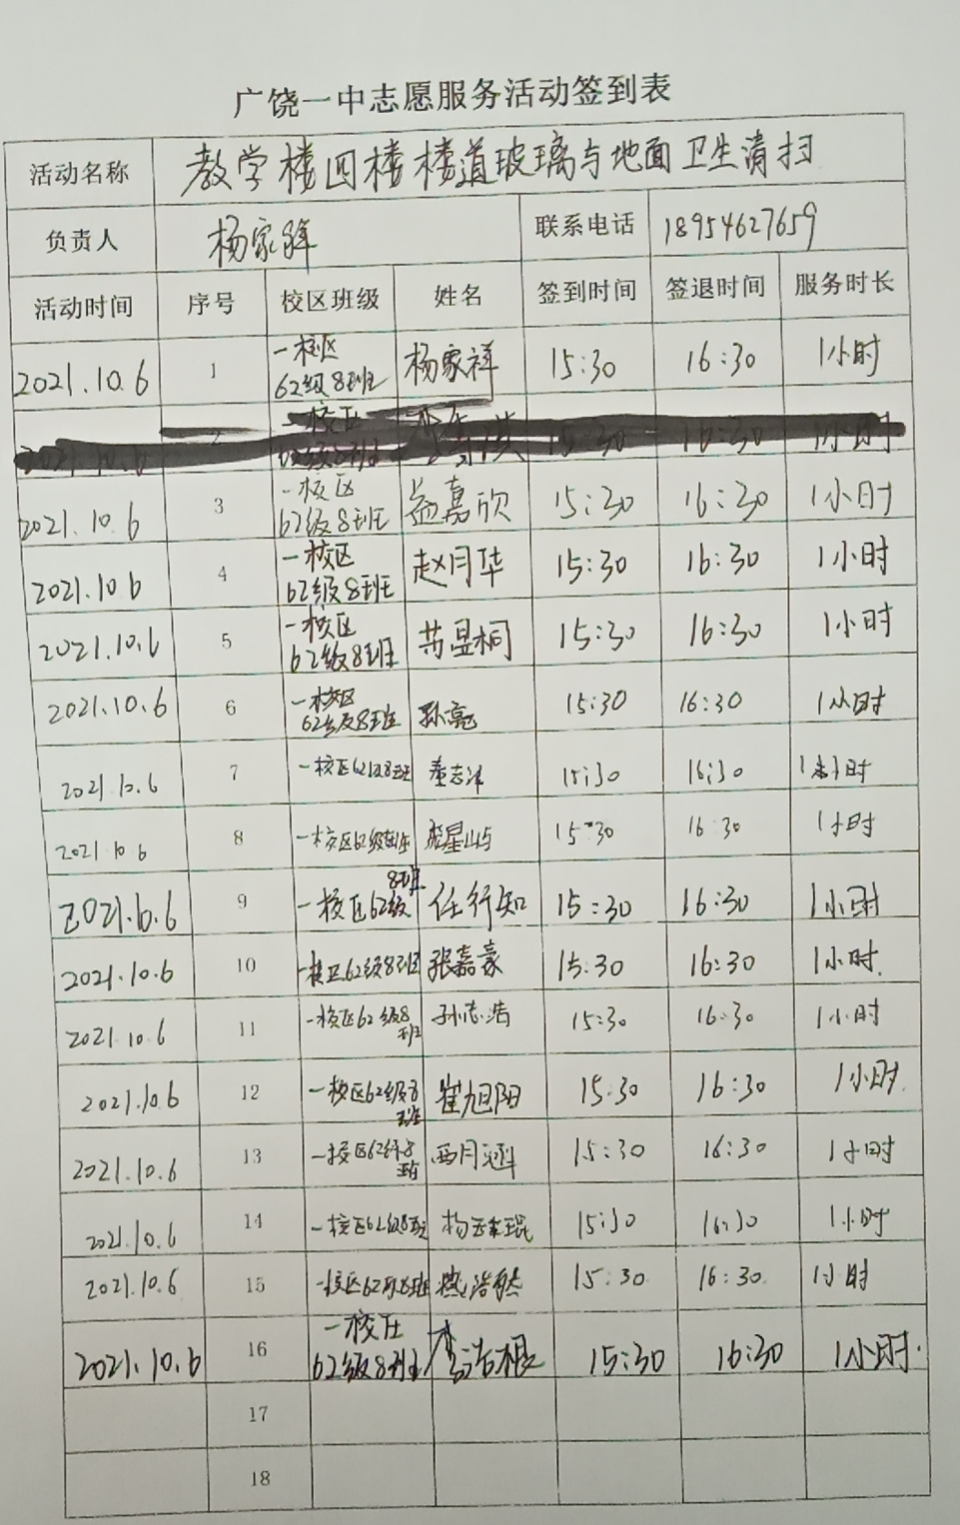 广饶一中志愿服务活动签到表
活动名称 教学楼四楼楼道玻璃与地面卫生清扫
负责人 杨家祥 联系电话 18954627659
活动时间 序号 校区班级 姓名 签到时间 签退时间 服务时长
2021.10.6 1 一校区 62级8班 杨家祥 15:30 16:30 1小时
2021.10.6 2 一校区 15:30 16:30 1小时
2021.10.6 3 一校区 62级8班 益嘉欣 15:30 16:30 1小时
2021.10.6 4 一校区 62级8班 赵月华 15:30 16:30 1小时
2021.10.6 5 一校区 62级8班 昱桐 15:30 16:30 1小时
2021.10.6 6 一校区 62级8班 孙亮 15:30 16:30 1小时
2021.10.6 7 一校区62级8班 15:30 16:30 1小时
2021.10.6 8 一校区62级 星屿 15:30 16:30 1小时
2021.10.6 9 一校区62级8班 任行知 15:30 16:30 1小时
2021.10.6 10 一校区62级8班 张嘉豪 15:30 16:30 1小时
2021.10.6 11 一校区62级8班 孙志浩 15:30 16:30 1小时
2021.10.6 12 一校区62级8班 崔旭阳 15:30 16:30 1小时
2021.10.6 13 一校区62级8班 西月涵 15:30 16:30 1小时
2021.10.6 14 一校区62级8班 15:30 16:30 1小时
2021.10.6 15 一校区62级8班 浩然 15:30 16:30 1小时
2021.10.6 16 一校区 62级8班 李浩根 15:30 16:30 1小时.
17
18